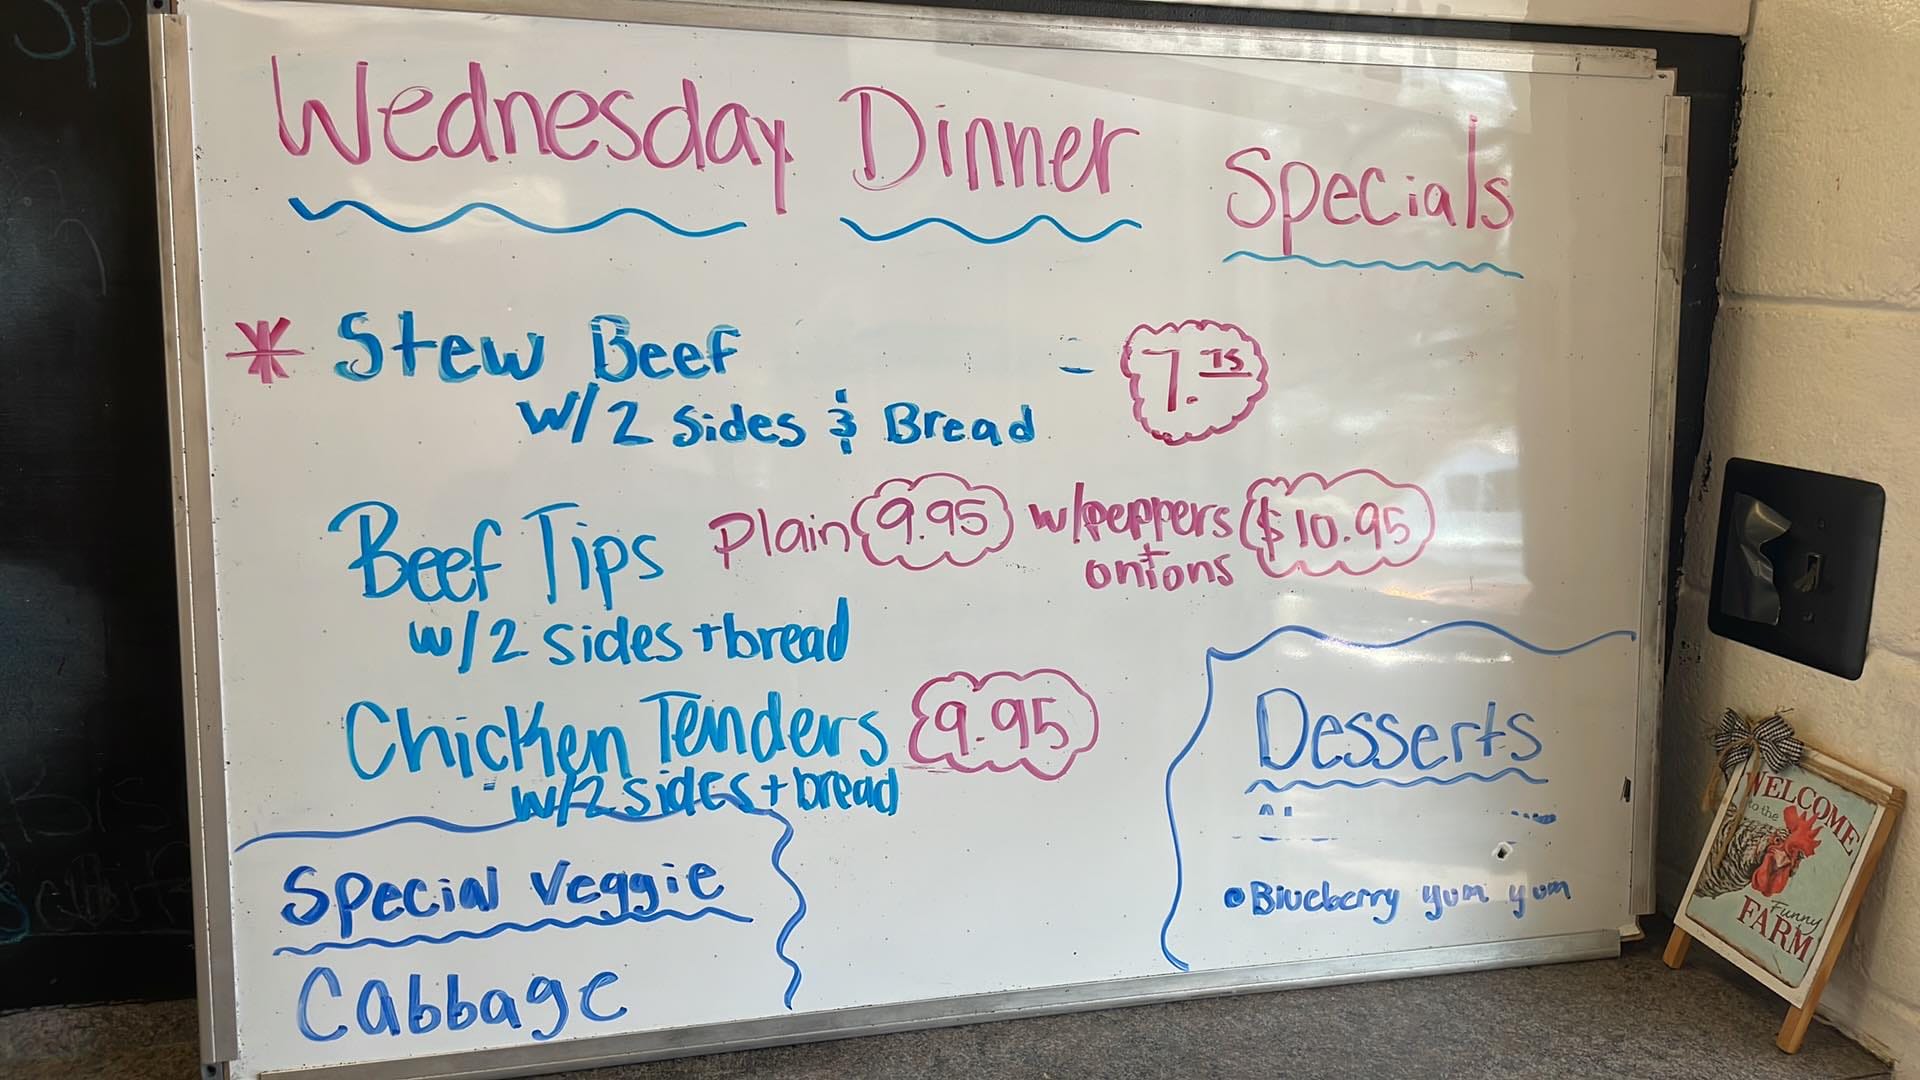 Wednesday Dinner Specials
* Stew Beef = 7.75
w/2 sides & Bread
Beef Tips Plain 9.95 w/peppers + onions $10.95
w/2 sides + bread
Chicken Tenders 9.95
w/2 sides + bread
Special Veggie
Cabbage
Desserts
• Blueberry yum yum
WELCOME
to the
Funny
FARM